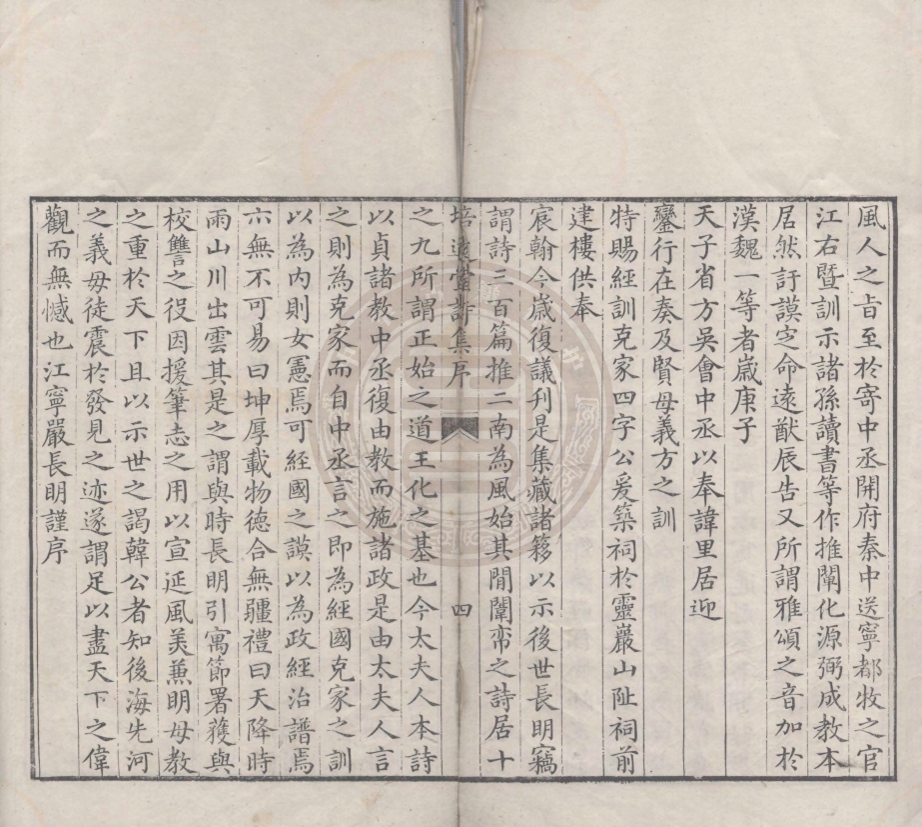 風人之旨至於寄中丞開府秦中送寧都牧之官
江右暨訓示諸孫讀書等作推闡化源弼成教本
居然訏謨定命遠猷辰告又所謂雅頌之音加於
漢魏一等者嵗庚子
天子省方吳會中丞以奉諱里居迎
鑾行在奏及賢母義方之訓
特賜經訓克家四字公爰築祠於靈巖山阯祠前
建樓供奉
宸翰今嵗復議刋是集藏諸簃以示後世長明竊
謂詩三百篇推二南為風始其閒闈帟之詩居十
培遠堂詩集序 四
之九所謂正始之道王化之基也今太夫人本詩
以貞諸教中丞復由教而施諸政是由太夫人言
之則為克家而自中丞言之即為經國克家之訓
以為内則女憲焉可經國之謨以為政經治譜焉
六無不可易曰坤厚載物德合無疆禮曰天降時
雨山川出雲其是之謂與時長明引寓節署獲與
校讐之役因援筆志之用以宣延風美兼明母教
之重於天下且以示世之謁韓公者知後海先河
之義毋徒震於發見之迹遂謂足以盡天下之偉
觀而無憾也江寧嚴長明謹序